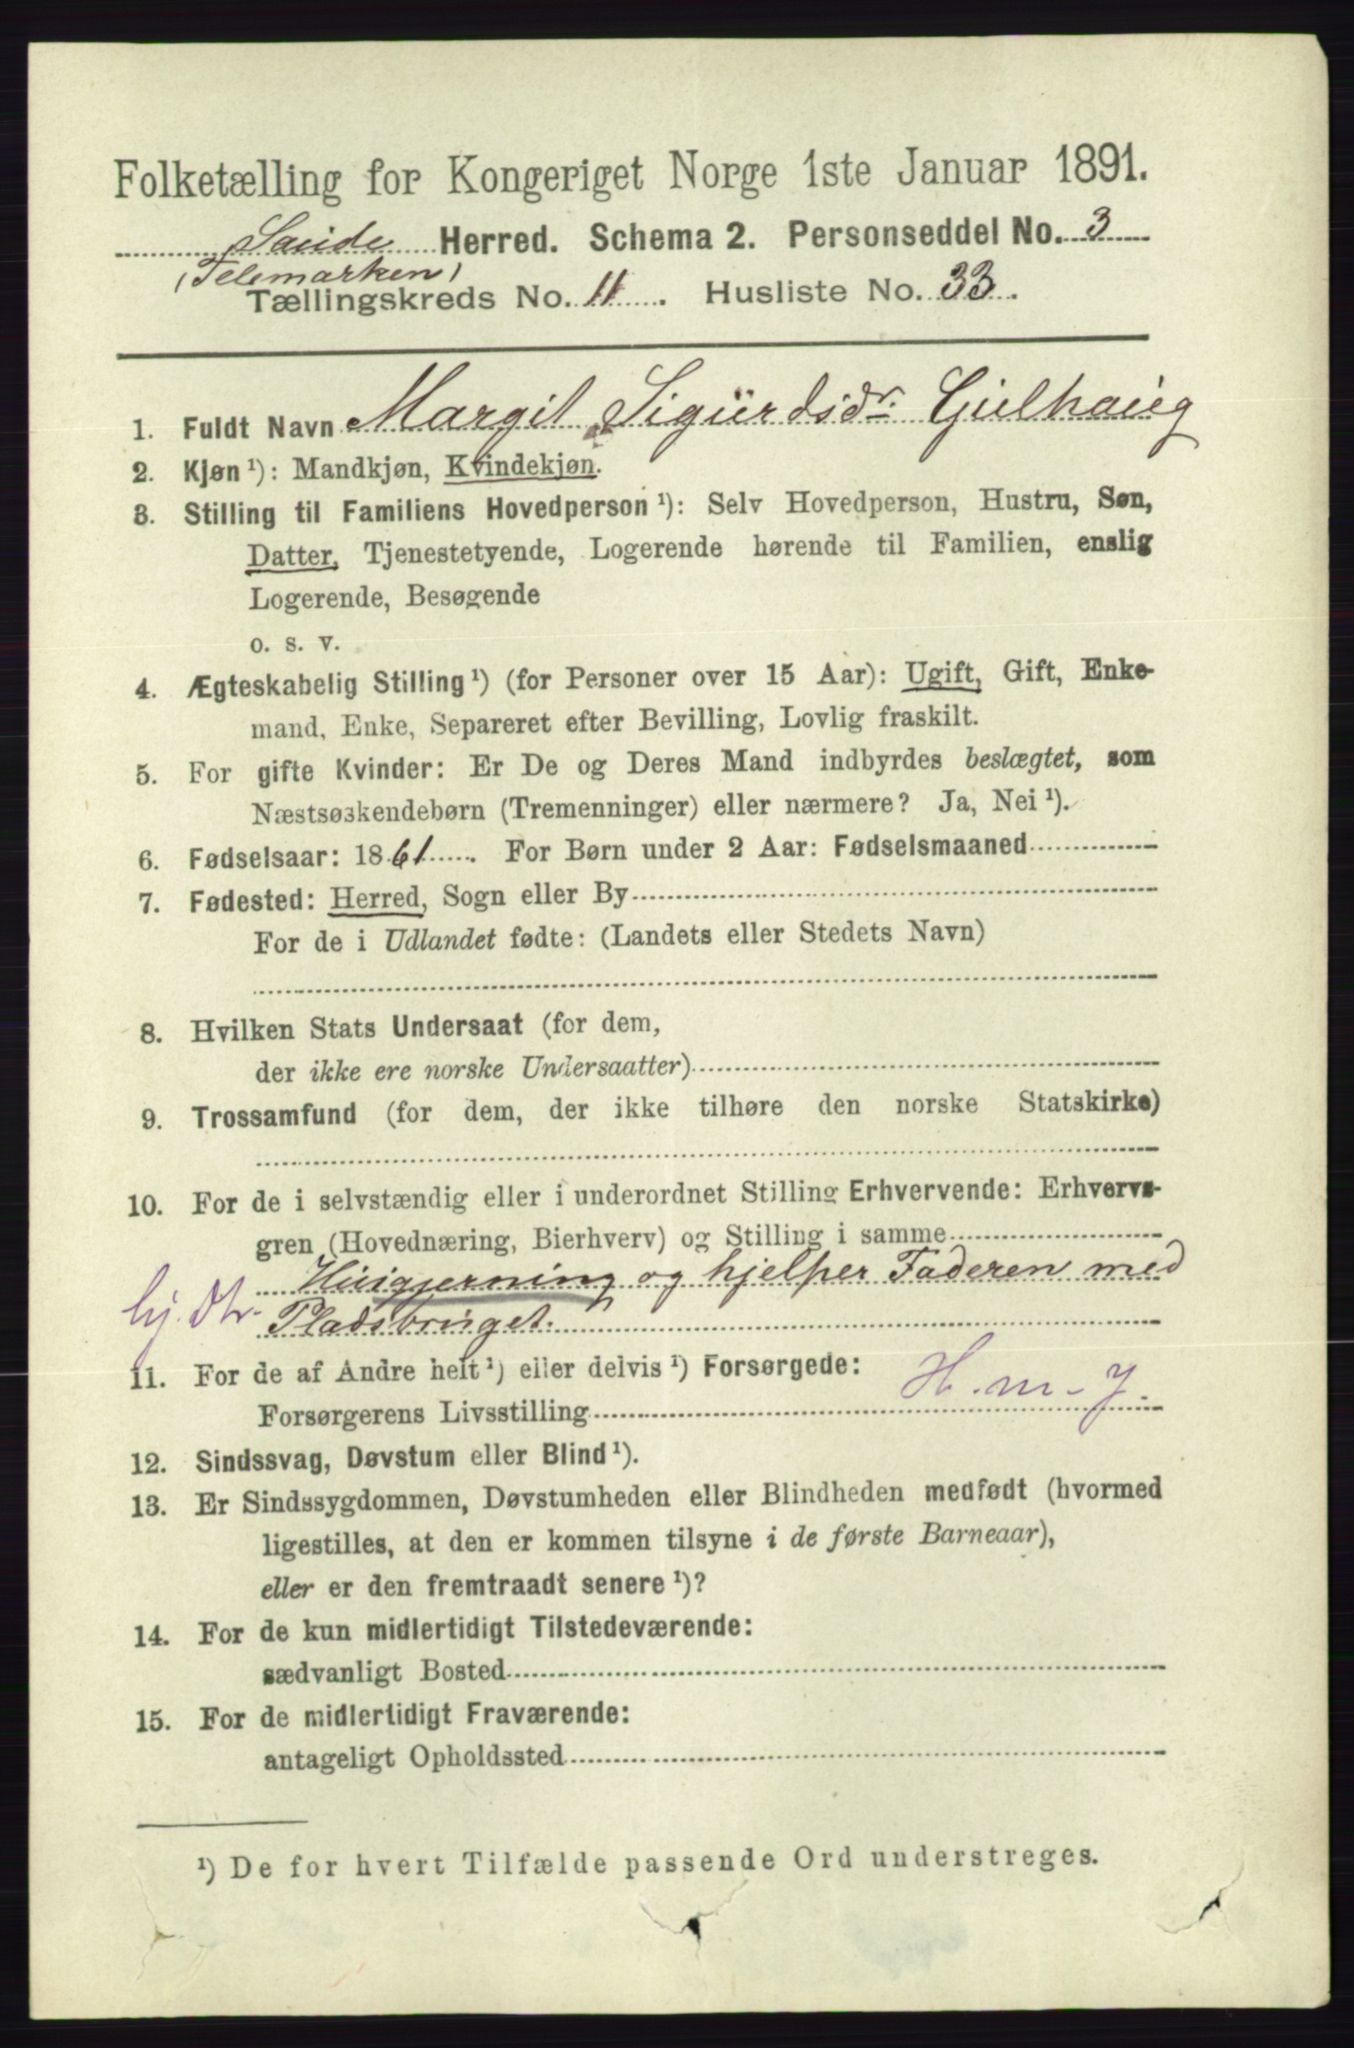 Folketælling for Kongeriget Norge 1ste Januar 1891.
Saude Herred. Schema 2. Personseddel No. 3
(Telemarken)
Tællingskreds No. 11. Husliste No. 33.
1. Fuldt Navn Margit Sigurdsdr. Gulhaug
2. Kjøn ¹): Mandkjøn, Kvindekjøn.
3. Stilling til Familiens Hovedperson ¹): Selv Hovedperson, Hustru, Søn,
Datter, Tjenestetyende, Logerende hørende til Familien, enslig
Logerende, Besøgende
o. s. v.
4. Ægteskabelig Stilling ¹) (for Personer over 15 Aar): Ugift, Gift, Enke-
mand, Enke, Separeret efter Bevilling, Lovlig fraskilt.
5. For gifte Kvinder: Er De og Deres Mand indbyrdes beslægtet, som
Næstsøskendebørn (Tremenninger) eller nærmere? Ja, Nei ¹).
6. Fødselsaar: 1861. For Børn under 2 Aar: Fødselsmaaned
7. Fødested: Herred, Sogn eller By
For de i Udlandet fødte: (Landets eller Stedets Navn)
8. Hvilken Stats Undersaat (for dem,
der ikke ere norske Undersaatter)
9. Trossamfund (for dem, der ikke tilhøre den norske Statskirke)
10. For de i selvstændig eller i underordnet Stilling Erhvervende: Erhvervs-
gren (Hovednæring, Bierhverv) og Stilling i samme
Husgjerning og hjelper Faderen med
hj. dtr. Pladsbruget.
11. For de af Andre helt ¹) eller delvis ¹) Forsørgede:
Forsørgerens Livsstilling H. m - J.
12. Sindssvag, Døvstum eller Blind ¹).
13. Er Sindssygdommen, Døvstumheden eller Blindheden medfødt (hvormed
ligestilles, at den er kommen tilsyne i de første Barneaar),
eller er den fremtraadt senere ¹)?
14. For de kun midlertidigt Tilstedeværende:
sædvanligt Bosted
15. For de midlertidigt Fraværende:
antageligt Opholdssted
¹) De for hvert Tilfælde passende Ord understreges.